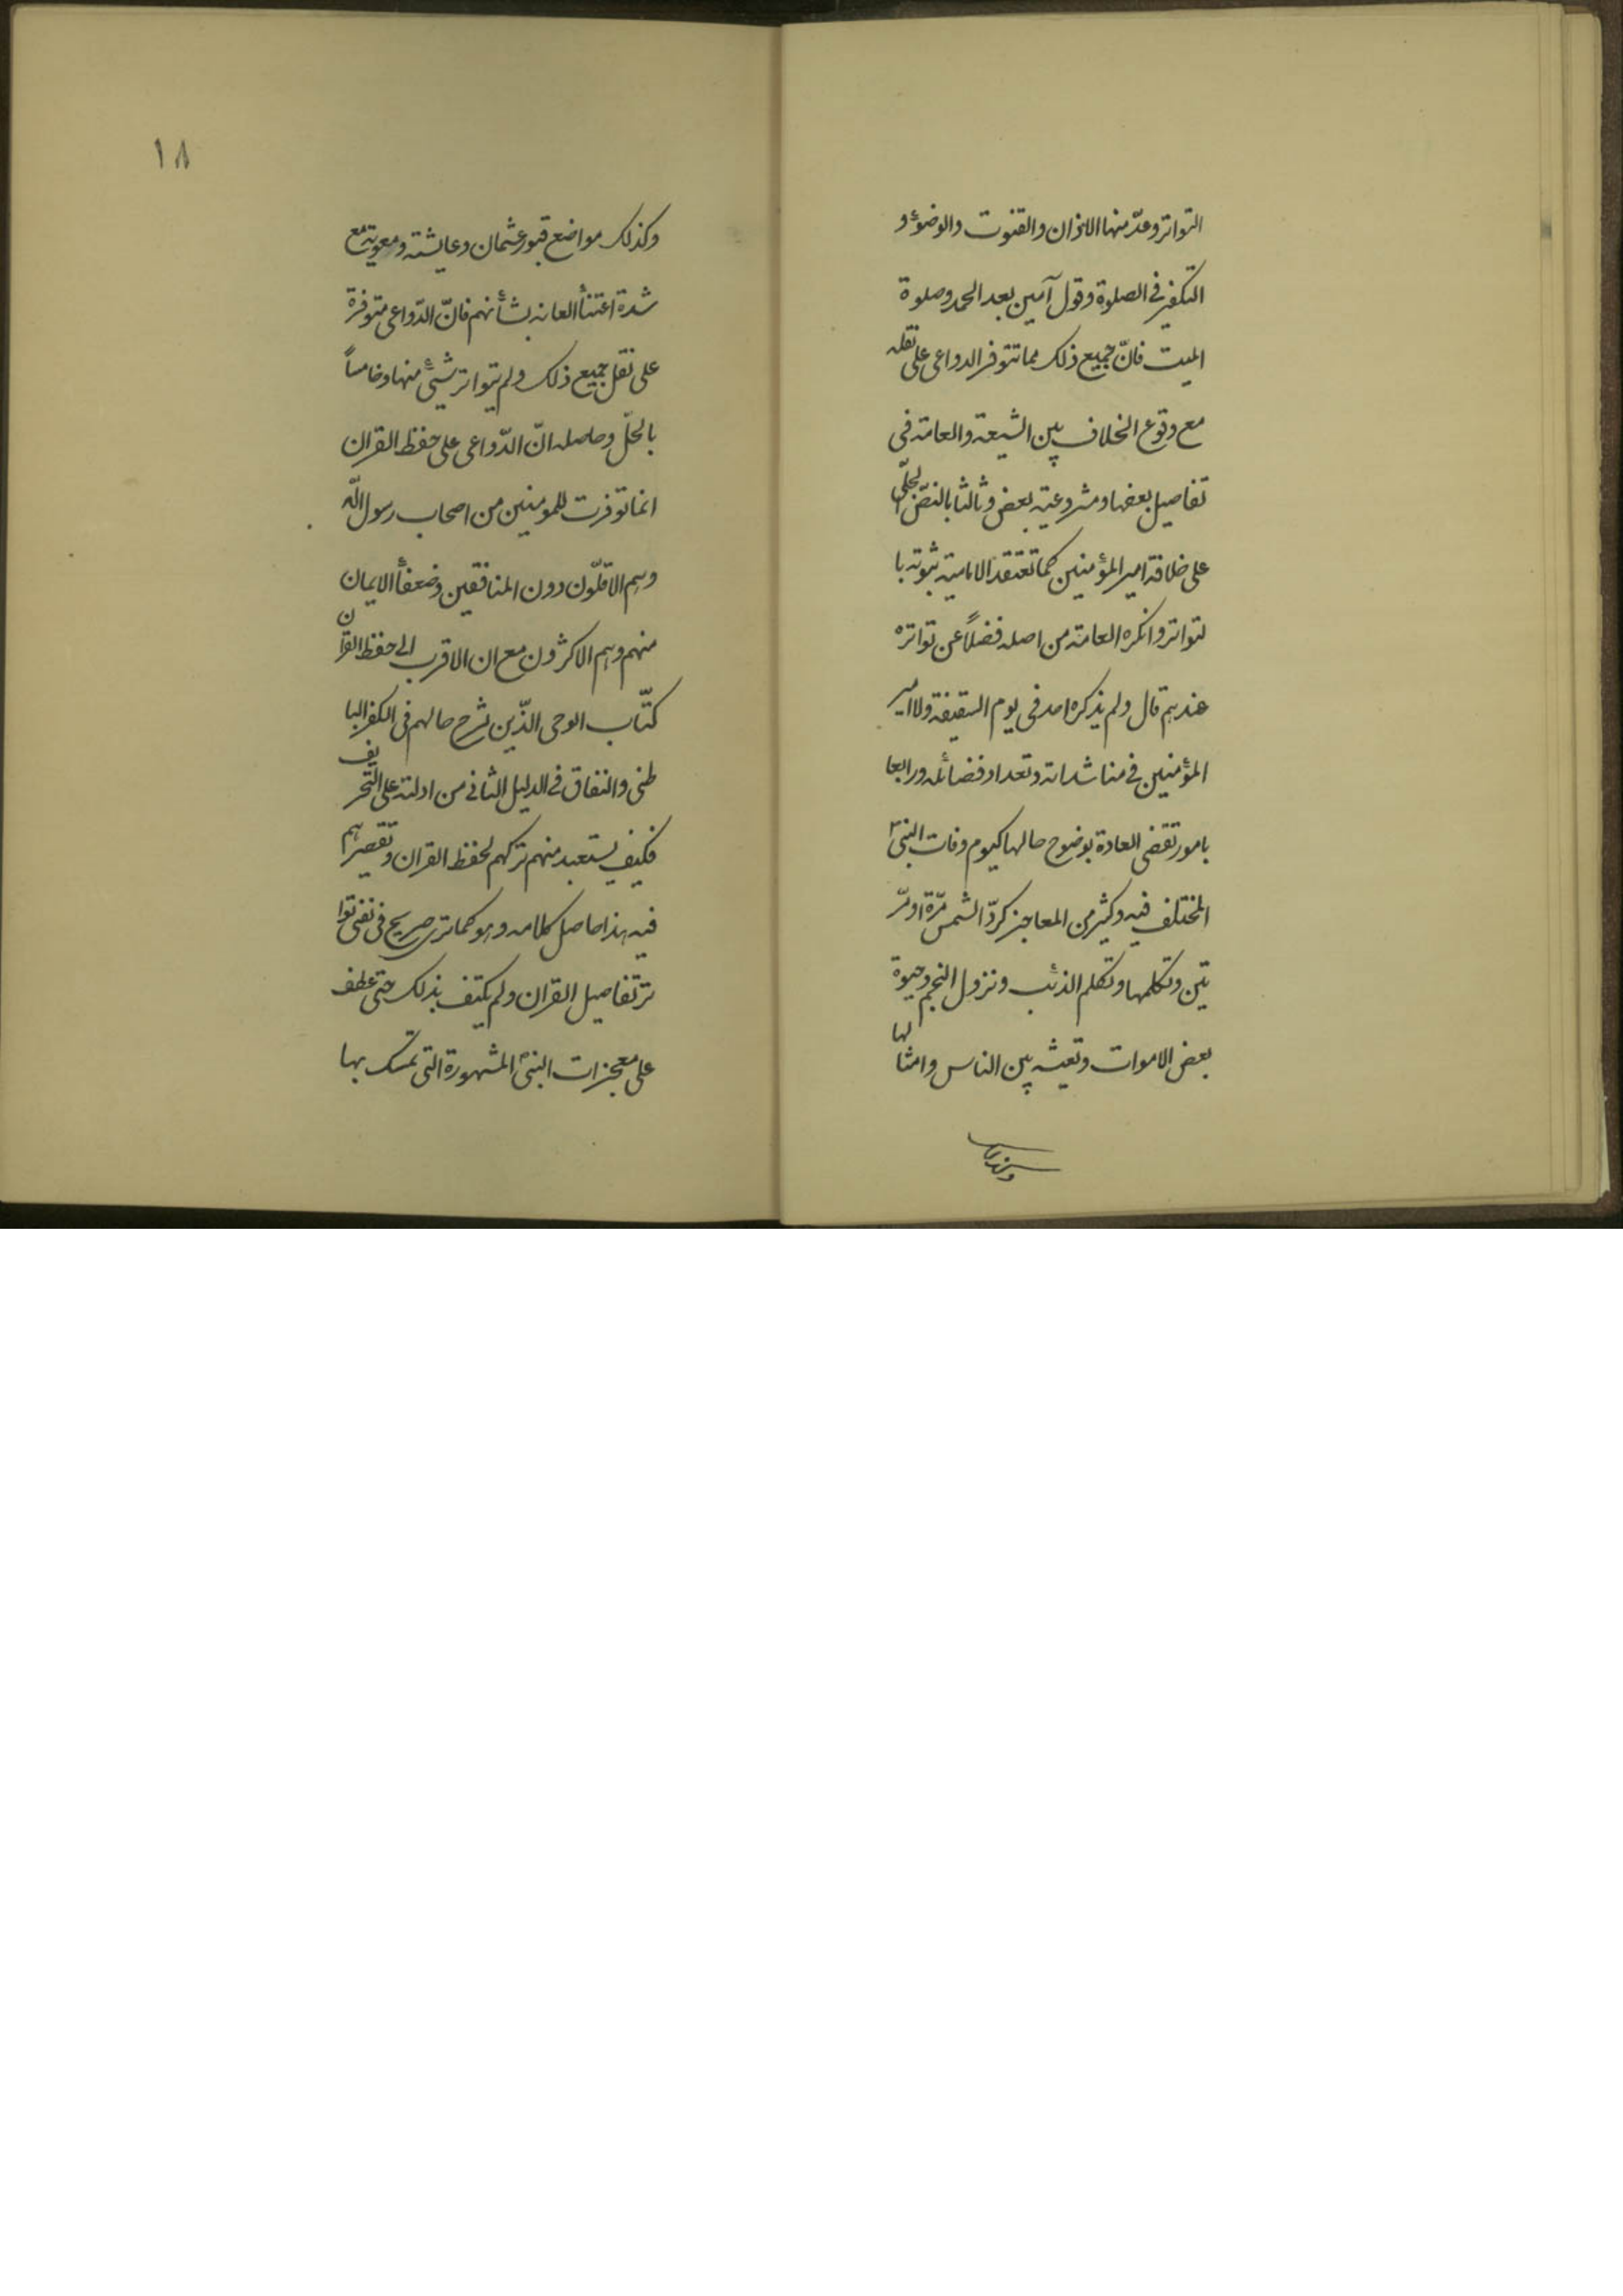 التواتر وعدّ منها الاذان والقنوت والوضوء و
التكفير في الصلوة وقول آمين بعد الحمد وصلوة
الميت فانّ جميع ذلك مما تتوفر الدواعى على نقله
مع وقوع الخلاف بين الشيعة والعامة فى
تفاصيل بعضها ومشروعية بعض وثالثا بالنصّ الجلّى
على خلافة امير المؤمنين كما تعتقد الامامية ثبوته با
لتواتر وانكره العامة من اصله فضلاً عن تواتره
عندهم قال ولم يذكره احد فى يوم السقيفة ولا امير
المؤمنين في مناشداته وتعداد فضائله ورابعا
بامور تقضى العادة بوضوح حالها كيوم وفات النبىّ
المختلف فيه وكثير من المعاجز كردّ الشمس مرّة او مرّ
تين وتكلمها وتكلم الذئب ونزول النجم وحيوة
بعض الاموات وتعيشه بين الناس وامثالها
وكذلك
١٨
وكذلك مواضع قبور عثمان وعايشة ومعوية مع
شدة اعتناء العامه بشأنهم فانّ الدّواعى متوفرة
على نقل جميع ذلك ولم يتواتر شىء منها وخامساً
بالحلّ وحاصله انّ الدّواعى على حفظ القران
انما توفرت للمومنين من اصحاب رسول اللّه
وهم الاقلّون دون المنافقين وضعفاء الايمان
منهم وهم الاكثرون مع ان الاقرب الى حفظ القران
كتّاب الوحى الذّين شرح حالهم فى الكفر البا
طنى والنفاق في الدليل الثانى من ادلته على التحريف
فكيف يستعبد منهم تركهم لحفظ القران وتقصيرهم
فيه هذا حاصل كلامه وهو كما ترى صريح فى نفى توا
تر تفاصيل القران ولم يكتف بذلك حتى عطف
على معجزات النبىّ المشهورة التى تمسك بها